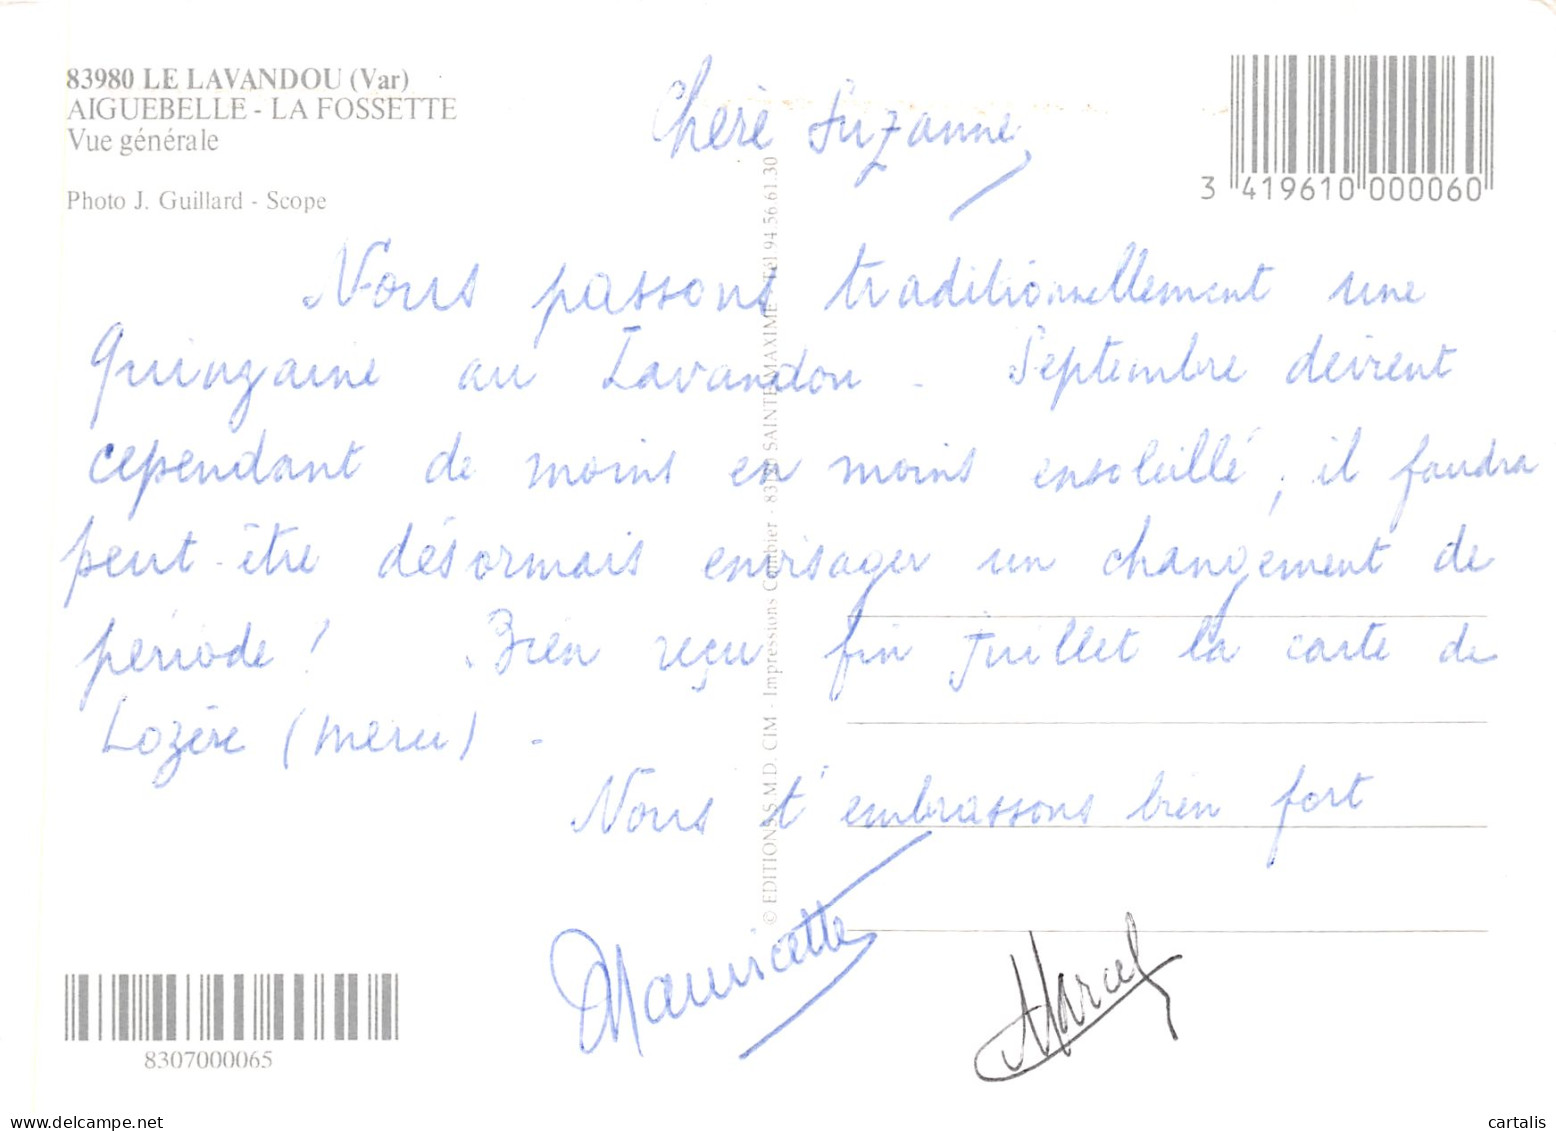 83980 LE LAVANDOU (Var)
AIGUEBELLE - LA FOSSETTE
Vue générale
Photo J. Guillard - Scope
3 419610 000060
Chère Suzanne,
Nous passons traditionnellement une
quinzaine au Lavandou - Septembre devient
cependant de moins en moins ensoleillé, il faudra
peut-être désormais envisager un changement de
période ! Bien reçu fin Juillet la carte de
Lozère (merci) -
Nous t'embrassons bien fort
Mauricette
Marcel
© EDITIONS S.M.D. CIM - Impressions Combier - SAINTE-MAXIME - Tél 94.56.61.30
8307000065
cartalis